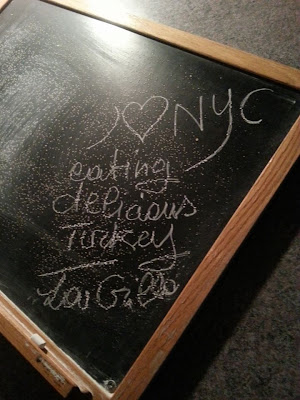 I ♡ NYC
eating
delicious
Turkey